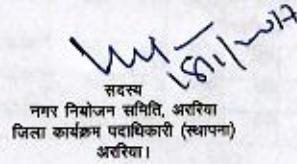 18/11/2017
सदस्य
नगर नियोजन समिति, अररिया
जिला कार्यक्रम पदाधिकारी (स्थापना)
अररिया।